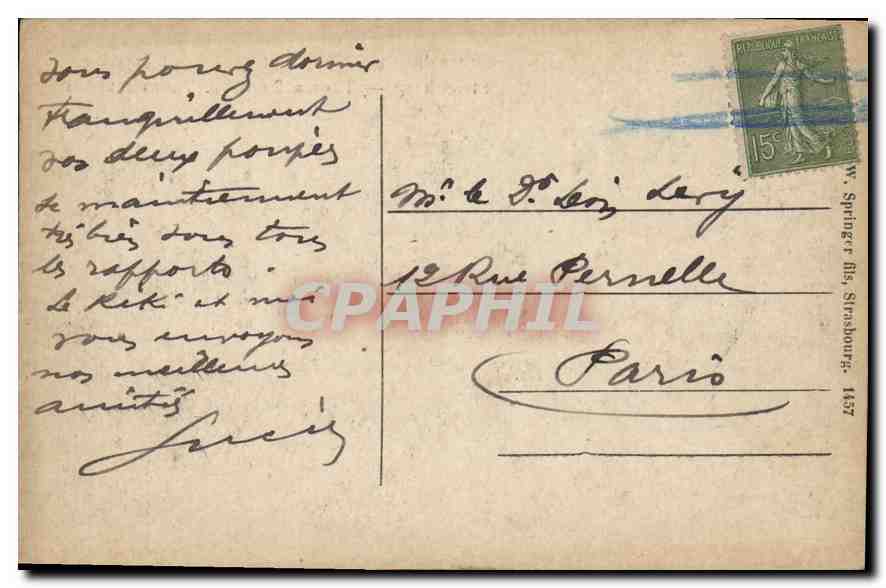 vous pouvez dormir
tranquillement
vos deux poupées
se maintiennent
très bien sous tous
les rapports.
Le Kiki et moi
vous envoyons
nos meilleures
amitiés
Lucien
REPUBLIQUE FRANÇAISE
15c
Mr. le Dr. Léon Levy
12 Rue Pernelle
Paris
W. Springer fils, Strasbourg. 1457
CPAPHIL